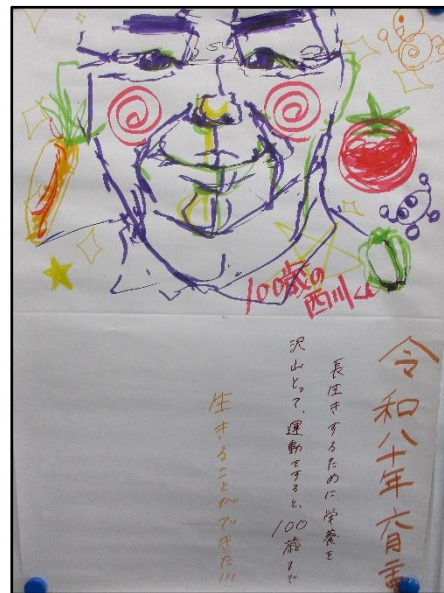 100歳の
西川くん
令和八十年六月
長生きするために栄養を
沢山とって、運動をすると、100歳まで
生きることができた!!!